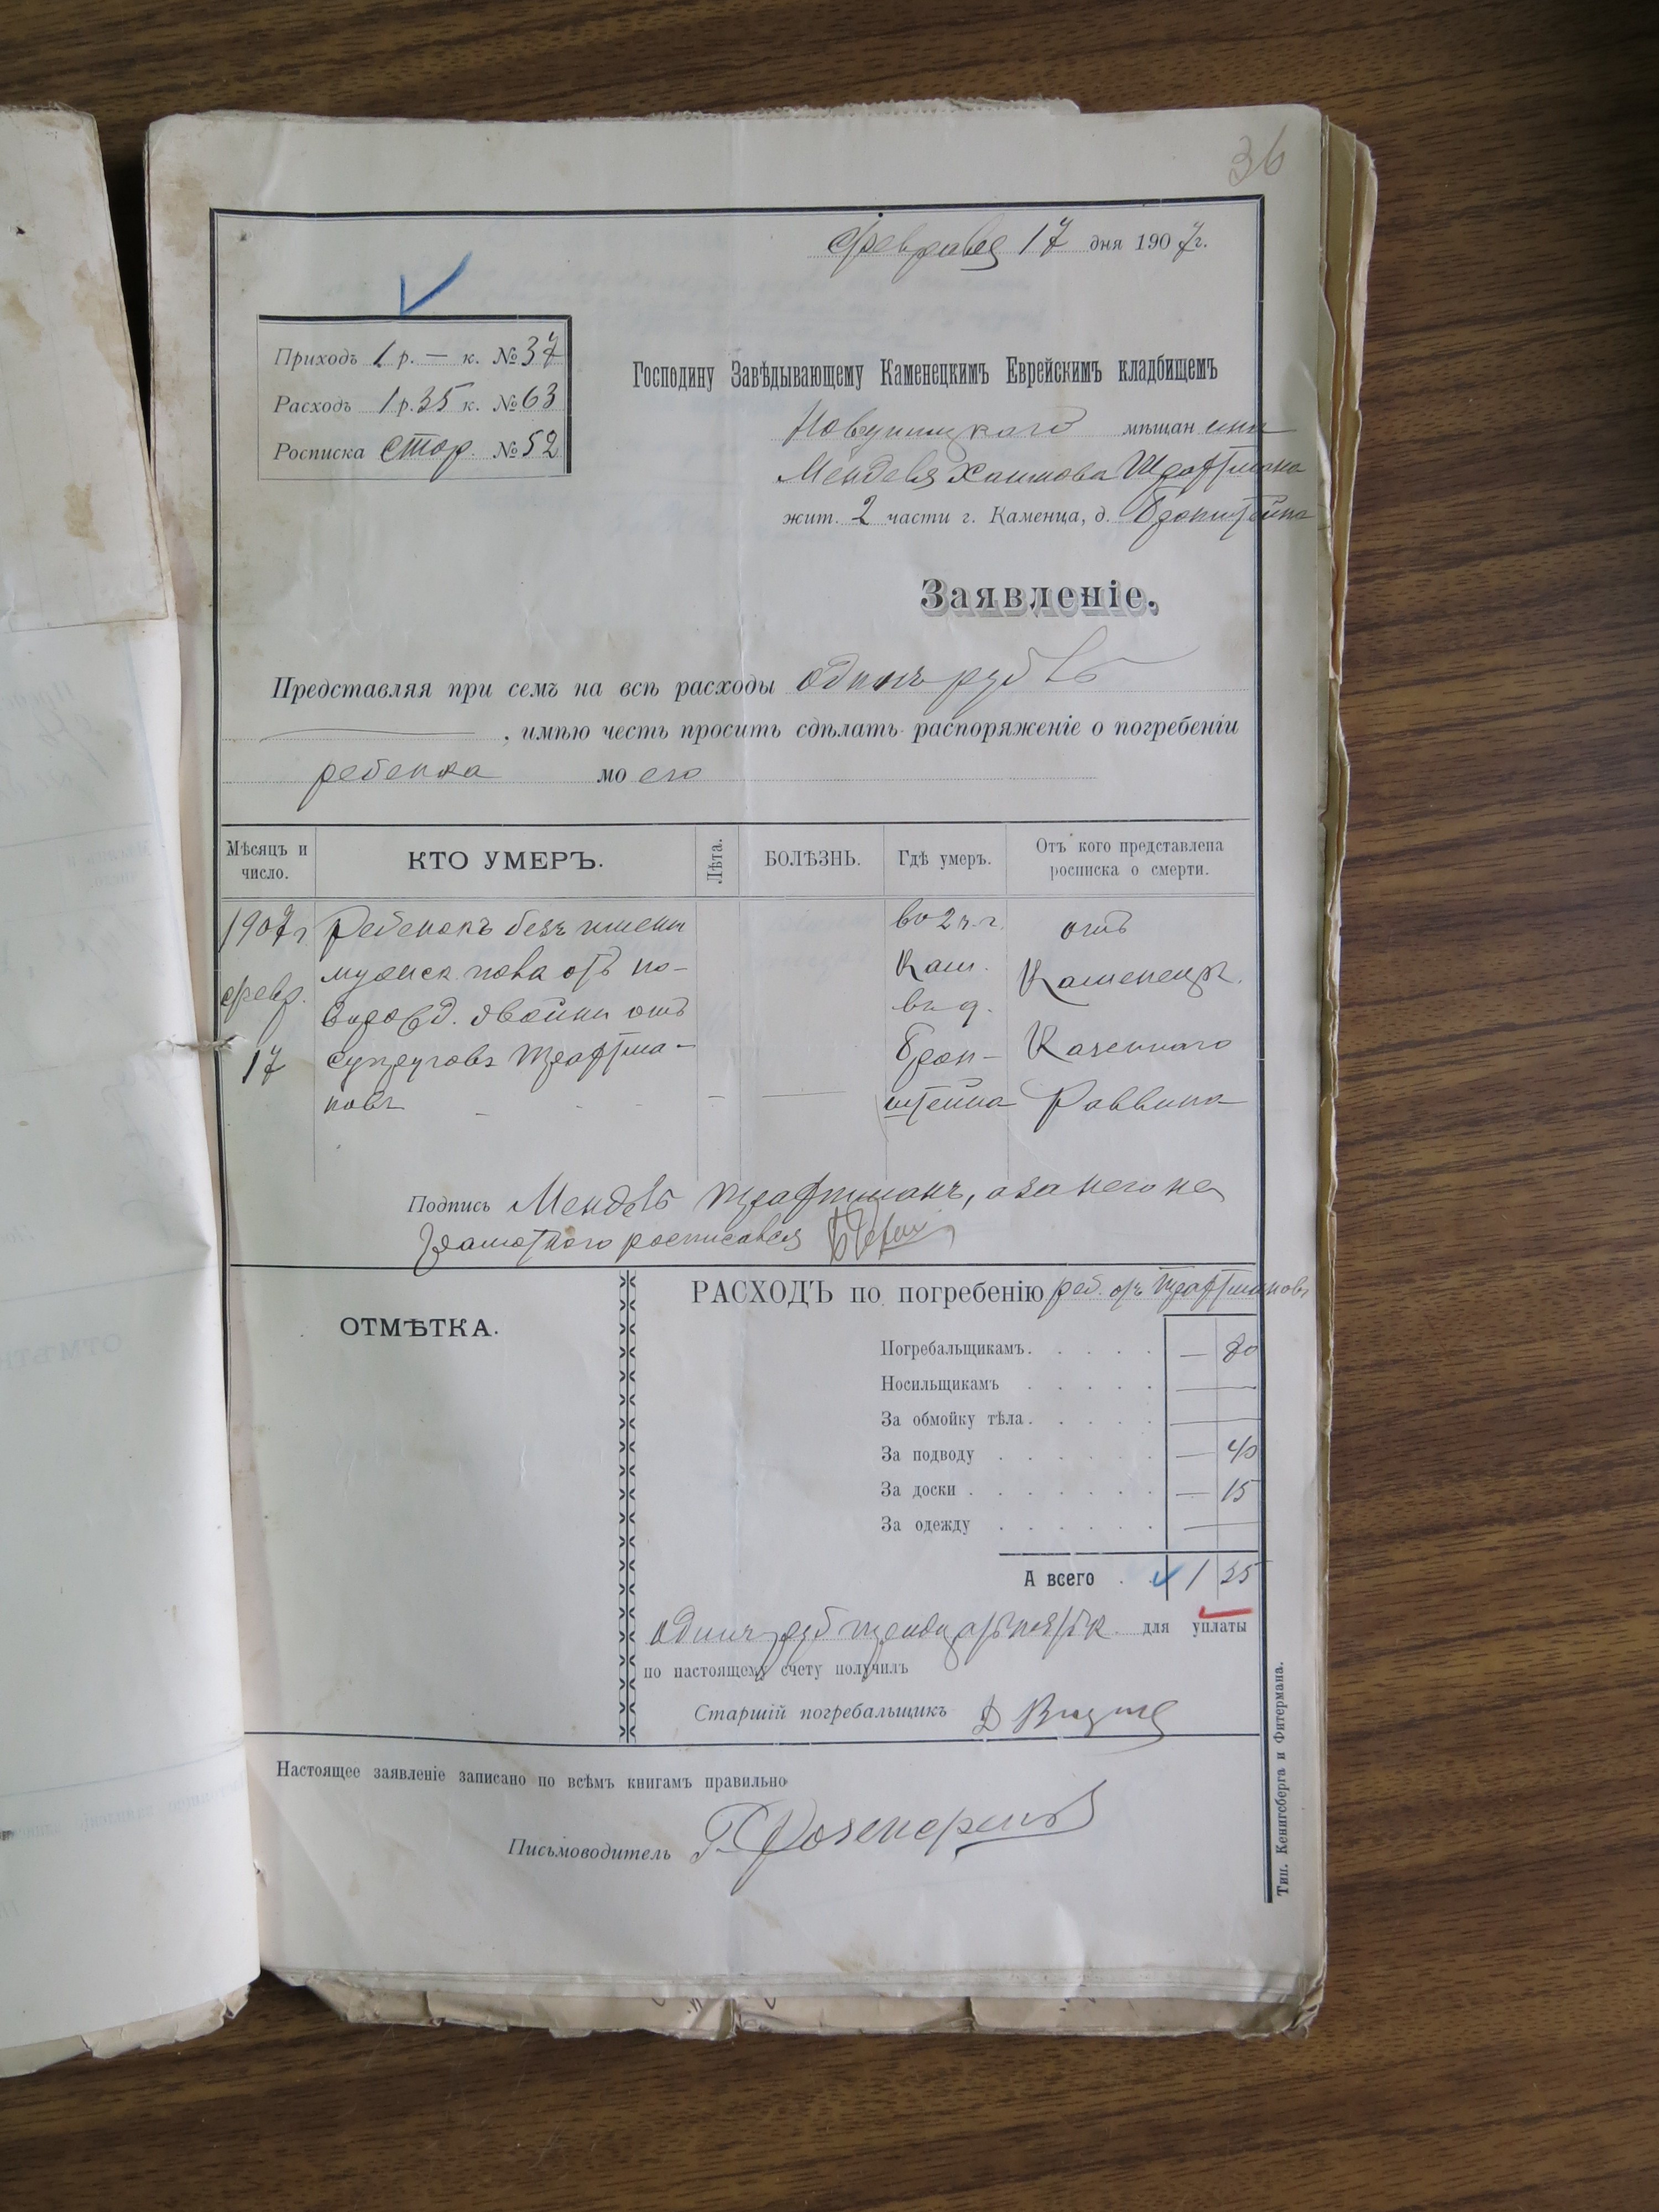 36
февраля 17 дня 1907 г.
Приходъ 1 р. — к. № 37
Расходъ 1 р. 35 к. № 63
Росписка стор. № 52
Господину Завѣдывающему Каменецкимъ Еврейскимъ кладбищемъ
Новоушицкаго мѣщанина
Менделя Хаимова
жит. 2 части г. Каменца, д. Бронштейна
Заявленіе.
Представляя при семъ на всѣ расходы одинъ рубль
, имѣю честь просить сдѣлать распоряженіе о погребеніи
ребенка моего
Мѣсяцъ и число.
КТО УМЕРЪ.
Лѣта.
БОЛѢЗНЬ.
Гдѣ умеръ.
Отъ кого представлена росписка о смерти.
1907 г. Ребенокъ безъ имени во 2 ч. г. отъ
февр. мужск. пола отъ но- Кам. Каменецк.
двойни отъ въ д.
17 супруговъ Брон- Казеннаго
новъ — — штейна Раввина
Подпись Мендель а за него не
грамотного росписался
ОТМѢТКА.
РАСХОДЪ по погребенію реб. отъ
Погребальщикамъ. — 80
Носильщикамъ —
За обмойку тѣла. —
За подводу — 40
За доски — 15
За одежду —
А всего 1 35
одинъ руб тридцать пять к. для уплаты
по настоящему счету получилъ
Старшій погребальщикъ Д
Настоящее заявленіе записано по всѣмъ книгамъ правильно
Письмоводитель
Тип. Кенигсберга и Фитермана.